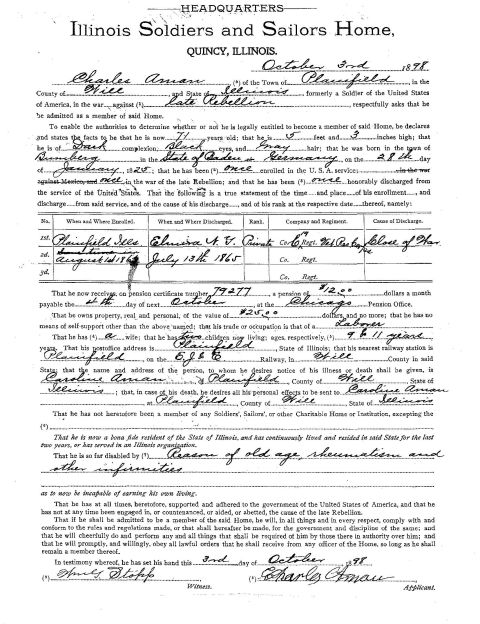 HEADQUARTERS
Illinois Soldiers and Sailors Home,
QUINCY, ILLINOIS.
October 3rd 1898.
Charles Aman (¹) of the Town of Plainfield, in the
County of Will and State of Illinois, formerly a Soldier of the United States
of America, in the war against (²) Late Rebellion, respectfully asks that he
be admitted as a member of said Home.
To enable the authorities to determine whether or not he is legally entitled to become a member of said Home, he declares
and states the facts to be that he is now 71 years old; that he is 5 feet and 3 inches high; that
he is of Dark complexion, Black eyes, and Gray hair; that he was born in the town of
in the State of Baden Germany on the 28th day
of January, 1825; that he has been (³) once enrolled in the U. S. service; in the war
against Mexico, and once in the war of the late Rebellion; and that he has been (³) once honorably discharged from
the service of the United States. That the following is a true statement of the time and place of his enrollment, and
discharge from said service, and of the cause of his discharge, and of his rank at the respective date thereof, namely:
No. When and Where Enrolled. When and Where Discharged. Rank. Company and Regiment. Cause of Discharge.
1st. Plainfield Ills. Elmira N. Y. Private Co. Regt. Close of War
2d. August 1st July 13th 1865 Co. Regt.
3d. Co. Regt.
That he now receives, on pension certificate number 79277 a pension of $12.00 dollars a month
payable the 4th day of next October, at the Chicago Pension Office.
That he owns property, real and personal, of the value of $25.00 dollars, and no more; that he has no
means of self-support other than the above named; that his trade or occupation is that of a Laborer
That he has (⁴) a wife; that he has two children now living; ages, respectively, (⁵) 9 & 11 years
years. That his postoffice address is Plainfield State of Illinois; that his nearest railway station is
Plainfield, on the E J & E Railway, in Will County in said
State; that the name and address of the person, to whom he desires notice of his illness or death shall be given, is
Caroline Aman of Plainfield County of Will State of
Illinois; that, in case of his death, he desires all his personal effects to be sent to Caroline Aman
at Plainfield, County of Will State of Illinois
That he has not heretofore been a member of any Soldiers', Sailors', or other Charitable Home or Institution, excepting the
(⁶)
That he is now a bona fide resident of the State of Illinois, and has continuously lived and resided in said State for the last
two years, or has served in an Illinois organization.
That he is so far disabled by (⁷) Reason of old age, rheumatism and
other infirmities
as to now be incapable of earning his own living.
That he has at all times, heretofore, supported and adhered to the government of the United States of America, and that he
has not at any time been engaged in, or countenanced, or aided, or abetted, the cause of the late Rebellion.
That if he shall be admitted to be a member of the said Home, he will, in all things and in every respect, comply with and
conform to the rules and regulations made, or that shall hereafter be made, for the government and discipline of the same; and
that he will cheerfully do and perform any and all things that shall be required of him by those there in authority over him; and
that he will promptly, and willingly, obey all lawful orders that he shall receive from any officer of the Home, so long as he shall
remain a member thereof.
In testimony whereof, he has set his hand this 3rd day of October 1898.
(⁸) Stopp (⁹) Charles Aman
Witness. Applicant.